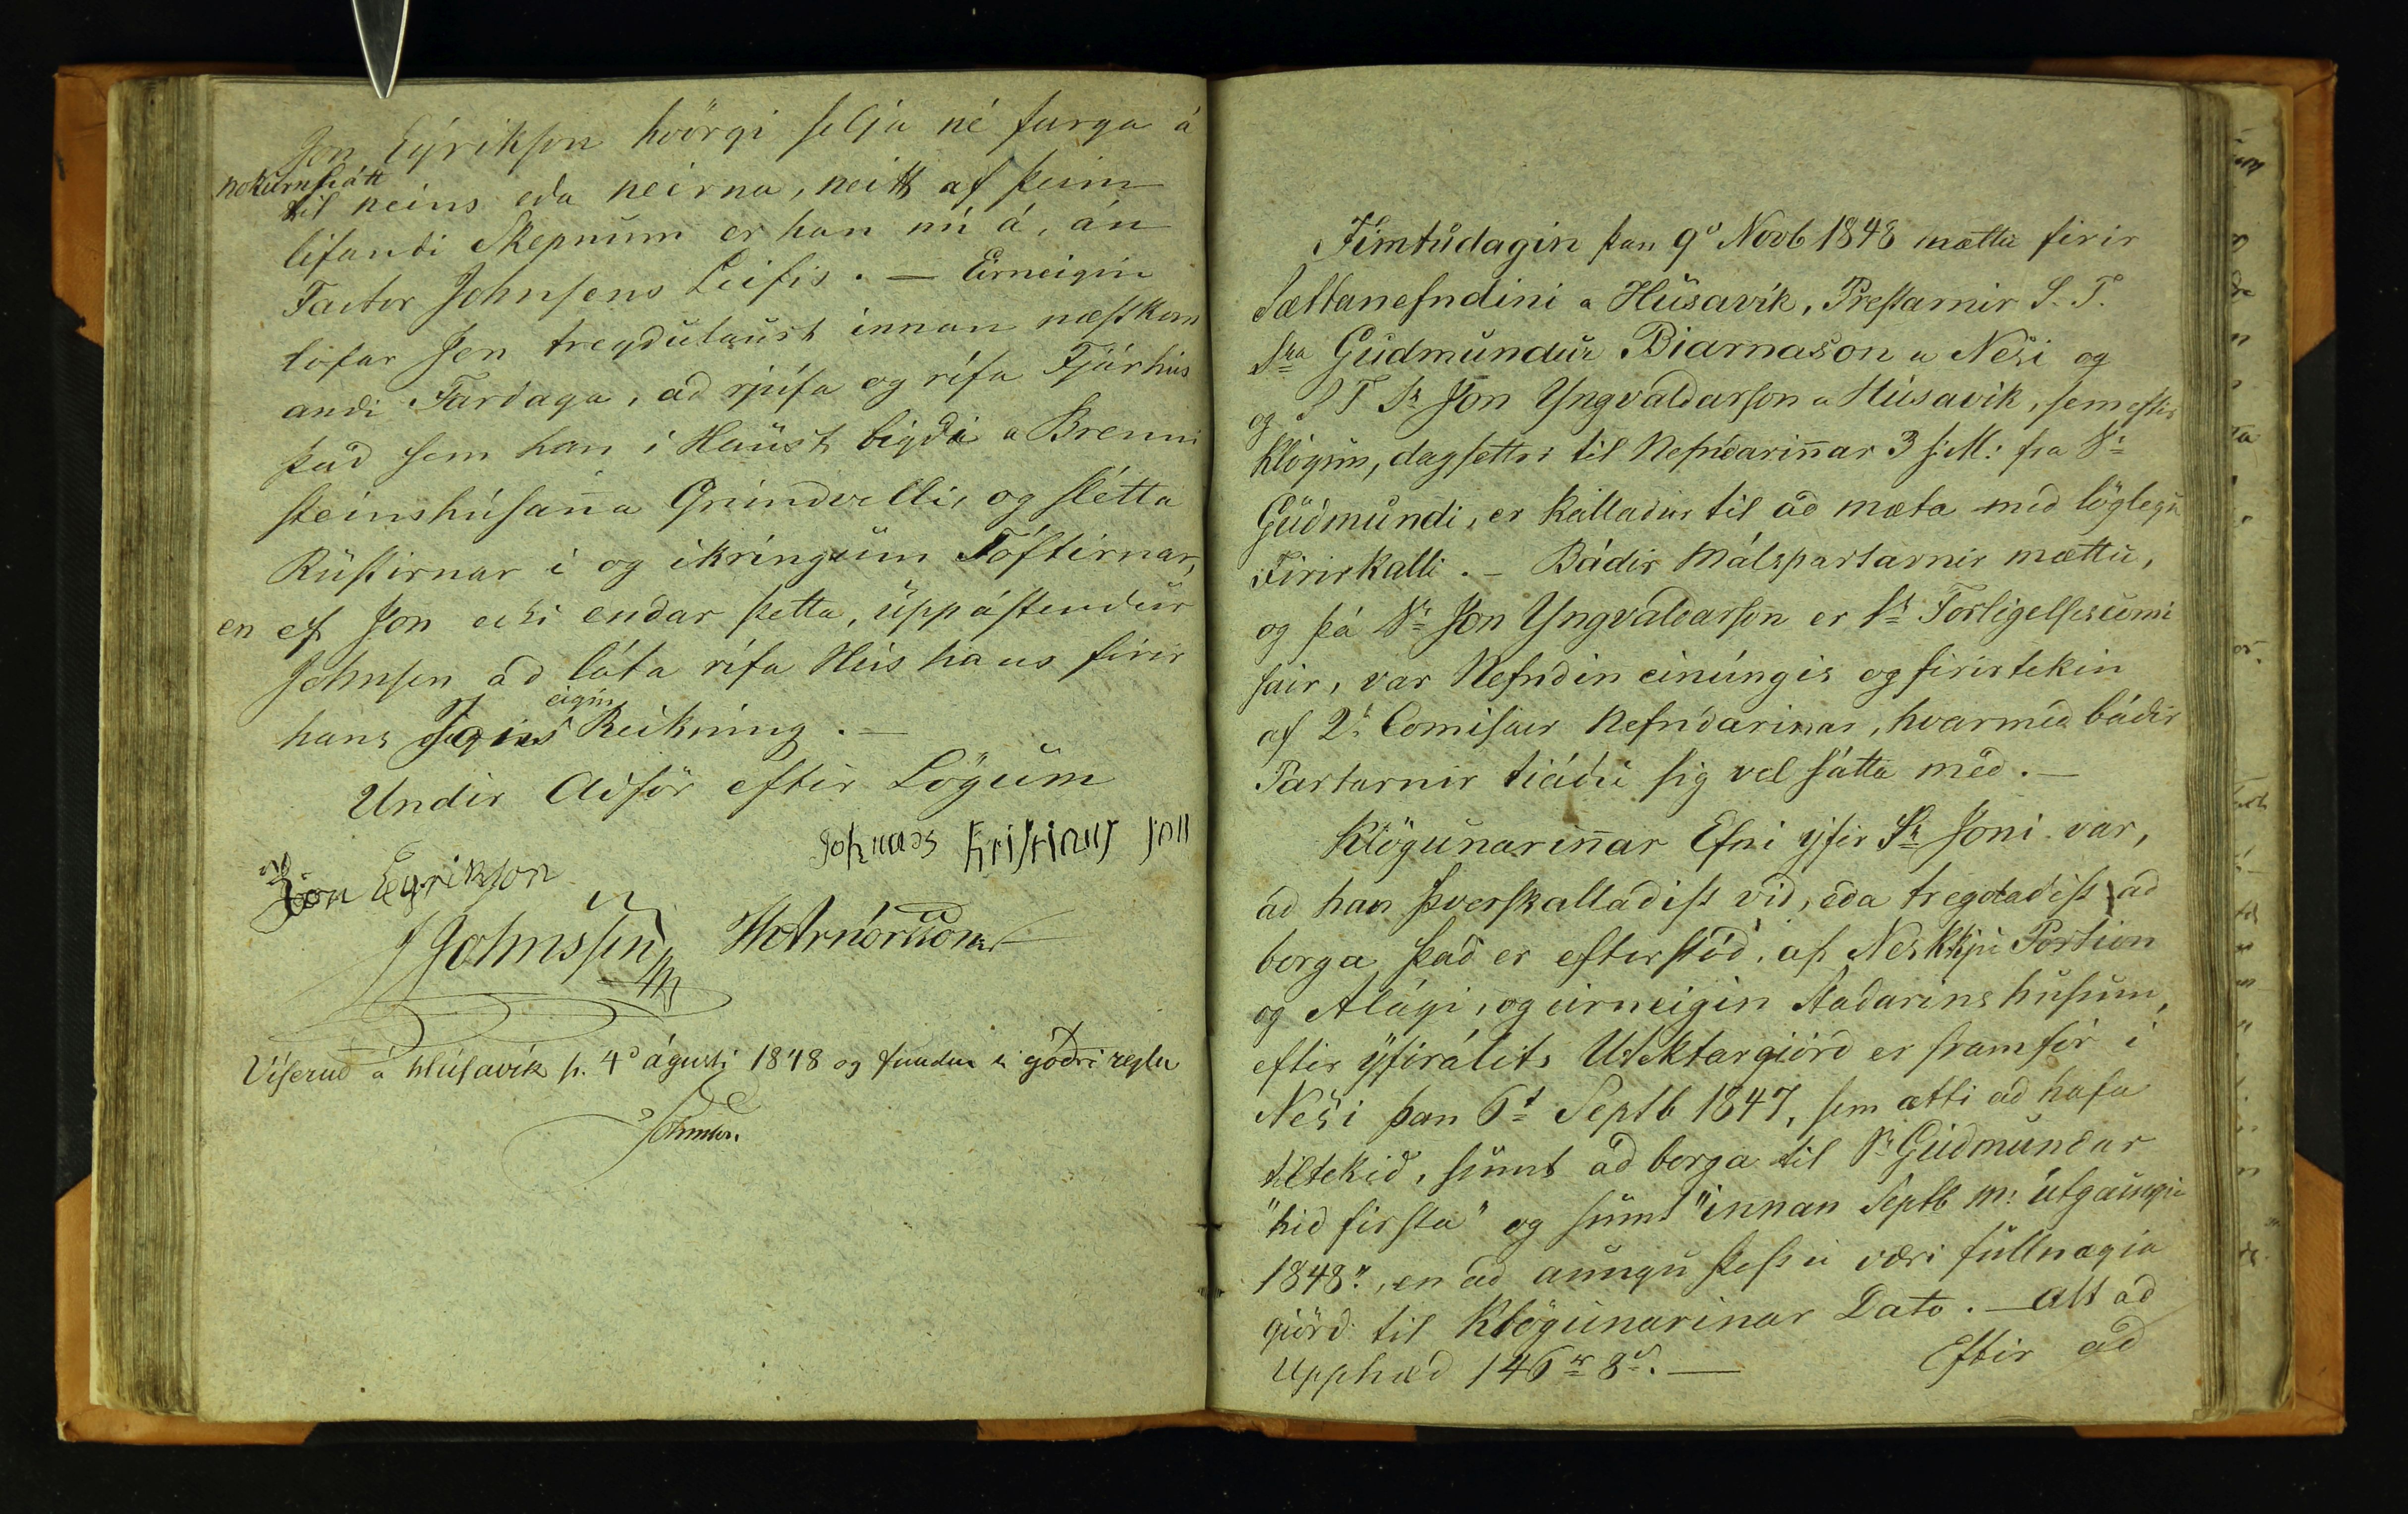 Jon Eyrikson hvörgi selja né farga á
nokurn hátt
til neins eda neirna, neitt af þeim
lifandi Skepnum er han nú á, án
Factor Johnsens Leifis. — Eirneigin
lofar Jon tregdulaust innan næstkom
andi Fardaga, ad rjúfa og rífa Fjárhús
þad sem han i Haust bigdi a Brenni
steinshúsaña Grundvelli, og slétta
Rústirnar i og ikringum Tóftirnar,
en ef Jon ecki endar þetta, uppástendur
Johnsen ad láta rífa Hús hans firir
eigin
hans Reikning. —
Undir Adför eftir Lögum
Johnas Kristians son
Jon Eyrikson
JJohnssen HArnórsson
Víserud á Húsavík þ. 4d águsti 1848 og fundin i gódri reglu
Johnsen.
Fimtudagin þan 9d Novb 1848 mættu firir
Sættanefndini a Húsavík, Prestarnir S. T.
Sra Gudmundur Biarnason a Nesi og
og S T Sr Jón Yngvaldarson a Húsavik, sem eftir
klögun, dagsettri til Nefndariñar 3 s: M: fra Sr
Gudmundi, er kalladur til ad mæta med löglegu
Firirkalli. — Bádir Málspartarnir mættu,
og þá Sr Jon Yngvaldarson er 1sti Forligelsescomi
sair, var Nefndin einúngis og firirtekin
af 2r Comisair Nefndarinar, hvarmed bádir
Partarnir tiádu sig vel sátta med. —
Klögunariñar Efni yfir Sr Joni var,
ad han þverskalladist vid, eda tregdadist ad
borga þad er efterstód, af Neskkju Portion
og Alagi, og eirneigin Stadarins húsum,
eftir yfirálits Utektargiörd er framfór i
Nesi þan 6t Septb 1847, sem ætti ad hafa
tiltekid, sumt ad borga til Sr Gudmundar
"hid firsta" og sumt "innan Septb m: útgaungu
1848", en ad aungu þessu væri fullnægia
giörd til Klögunarinar Dato. — Alt ad
Upphæd 146 rd 8 s. — Eftir ad